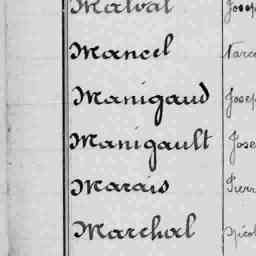 Malval Josep
Mancel Narci
Manigaud Josep
Manigault Jose
Marais Pierr
Marchal Nicol